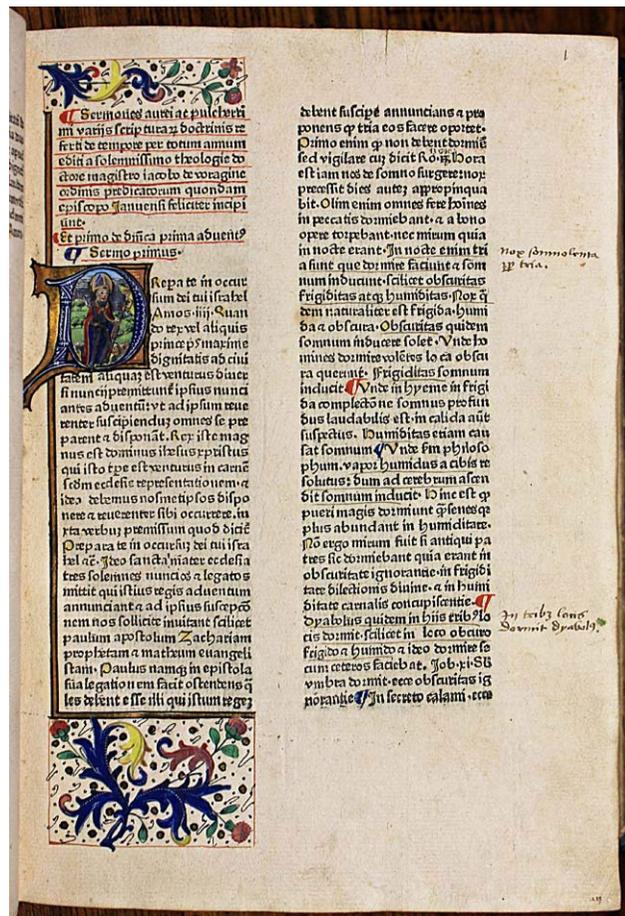 Sermones aurei ac pulcherri
mi varijs scripturaꝝ doctrinis re
ferti de tempore per totum annum
editi a solemnissimo theologie do
ctore magistro iacobo de voragine
ordinis predicatorum quondam
episcopo Januensi feliciter incipi
unt.
Et primo de dn̄ica prima aduentꝰ
Sermo primus.
PRepara te in occur
sum dei tui israhel
Amos. iiij. Quan
do rex vel aliquis
princeps maxime
dignitatis ad ciui
tatem aliquaꝫ est venturus diuer
si nuncij premittunt̄ ipsius nunci
antes aduentū: vt ad ipsum reue
renter suscipienduꝫ omnes se pre
parent ⁊ disponāt. Rex iste mag
nus est dominus ihesus xpristus
qui isto tp̄e est venturus in carnē
scd̄m ecclesie representationem. ⁊
ideo debemus nosmetipsos dispo
nere ⁊ reuerenter sibi occurrere. iu
xta verbuꝫ premissum quod dicit̄
Prepara te in occursuꝫ dei tui isra
hel ⁊c̄. Ideo sancta mater ecclesia
tres solennes nuncios ⁊ legatos
mittit qui istius regis aduentum
annunciant ⁊ ad ipsius suscepcō
nem nos sollicite inuitant scilicet
paulum apostolum Zachariam
prophetam ⁊ matheum euangeli
stam. Paulus namqꝫ in epistola
sua legationem facit ostendens q̄
les debent esse illi qui istum regeꝫ
1
debent suscipe annuncians ⁊ pro
ponens ꝙ tria eos facere oportet.
Primo enim ꝙ non debent dormiē
sed vigilare cuꝫ dicit Hora
est iam nos de somno surgere: nox
precessit dies autez appropinqua
bit. Olim enim omnes fere hoīnes
in peccatis dormiebant. ⁊ a bono
opere torpebant. nec mirum quia
in nocte erant. In nocte enim tri
a sunt que dormire faciunt ⁊ som
num inducunt. scilicet obscuritas
frigiditas atqꝫ humiditas. Nox q̄
dem naturaliter est frigida. humi
da ⁊ obscura. Obscuritas quidem
somnum inducere solet. Vnde ho
mines dormire volētes loca obscu
ra querunt. Frigiditas somnum
inducit Vnde in hyeme in frigi
da complectōne somnus profun
dus laudabilis est. in calida aūt
suspectus. Humiditas etiam cau
sat somnum Vnde scd̄m philoso
phum. vapor humidus a cibis re
solutus: dum ad cerebrum ascen
dit somnum inducit. Hinc est ꝙ
pueri magis dormiunt ꝙ̄ senes qꝛ
plus abundant in humiditate.
Nō ergo mirum fuit si antiqui pa
tres sic dormiebant quia erant in
obscuritate ignorantie. in frigidi
tate dilectionis diuine. ⁊ in humi
ditate carnalis concupiscentie.
Dyabolus quidem in hiis tribꝰ lo
cis dormit. scilicet in loco obscuro
frigido ⁊ humido ⁊ ideo dormire se
cum ceteros faciebat. Job. xi. Sb̄
vmbra dormit. ecce obscuritas ig
norantie In secreto calami. ecce
nox somnolenta
tria.
In tribꝫ locis
dormit dyabolꝰ.